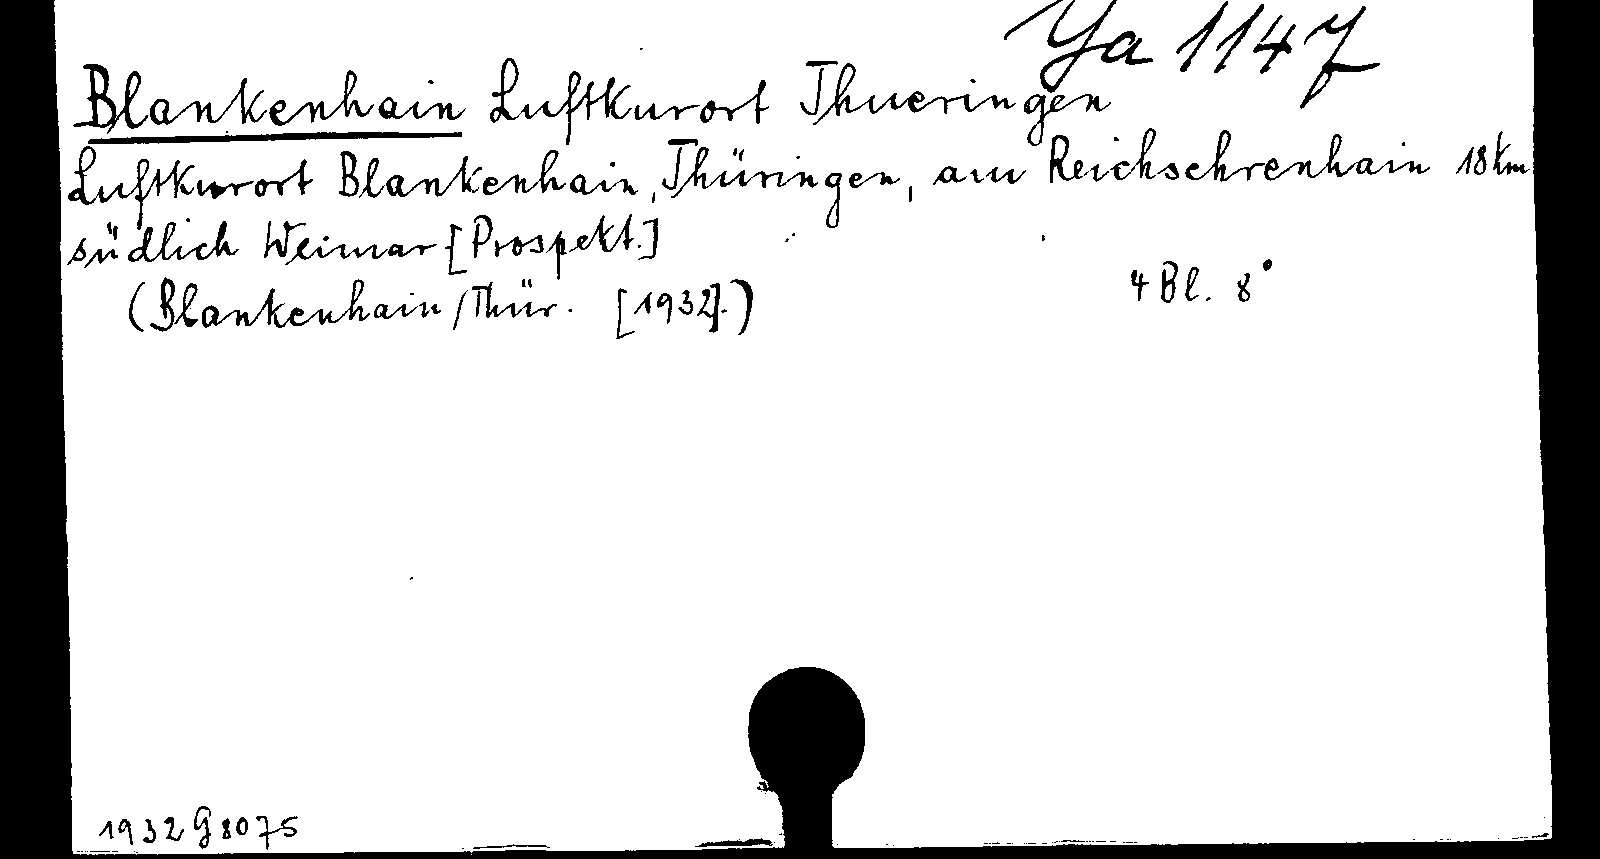 Ya 1147
Blankenhain Luftkurort Thueringen
Luftkurort Blankenhain, Thüringen, am Reichsehrenhain 18 km
südlich Weimar [Prospekt.]
(Blankenhain/Thür. [1932].)
4 Bl. 8°
1932 G 8075